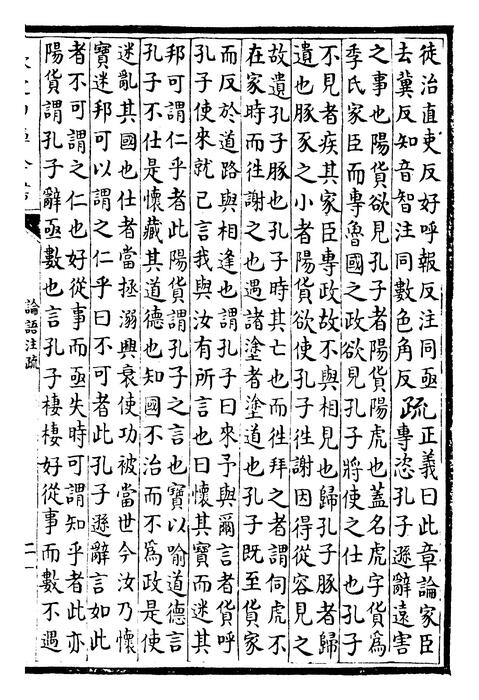 徒治直吏反好呼報反注同亟
去冀反知音智注同數色角反疏正義曰此章論家臣
專恣孔子遜辭遠害
之事也陽貨欲見孔子者陽貨陽虎也蓋名虎字貨爲
季氏家臣而專魯國之政欲見孔子將使之仕也孔子
不見者疾其家臣專政故不與相見也歸孔子豚者歸
遺也豚豕之小者陽貨欲使孔子徃謝因得從容見之
故遺孔子豚也孔子時其亡也而徃拜之者謂伺虎不
在家時而徃謝之也遇諸塗者塗道也孔子既至貨家
而反於道路與相逢也謂孔子曰來予與爾言者貨呼
孔子使來就己言我與汝有所言也曰懷其寶而迷其
邦可謂仁乎者此陽貨謂孔子之言也寶以喻道德言
孔子不仕是懷藏其道德也知國不治而不爲政是使
迷亂其國也仕者當拯溺興衰使功被當世今汝乃懷
寶迷邦可以謂之仁乎曰不可者此孔子遜辭言如此
者不可謂之仁也好從事而亟失時可謂知乎者此亦
陽貨謂孔子辭亟數也言孔子棲棲好從事而數不遇
論語注疏
二